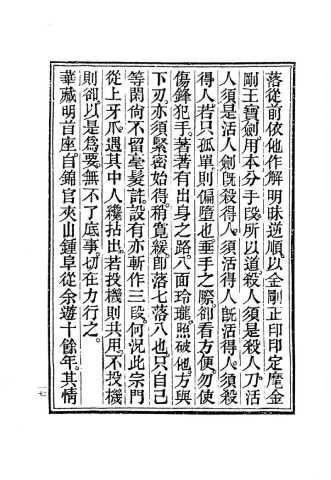 落從前依他作解明昧逆順以金剛正印印定麾金
剛王寶劍用本分手段所以道殺人須是殺人刀活
人須是活人劍旣殺得人須活得人旣活得人須殺
得人若只孤單則偏墮也垂手之際却看方便勿使
傷鋒犯手著著有出身之路八面玲瓏照破他方與
下刃亦須緊密始得稍寬緩卽落七落八也只自己
等閑尚不留毫髮許設有亦斬作三段何況此宗門
從上牙爪遇其中人纔拈出若投機則共用不投機
則卻以是爲要無不了底事切在力行之
華藏明首座自錦官夾山鍾阜從余遊十餘年其情
一七